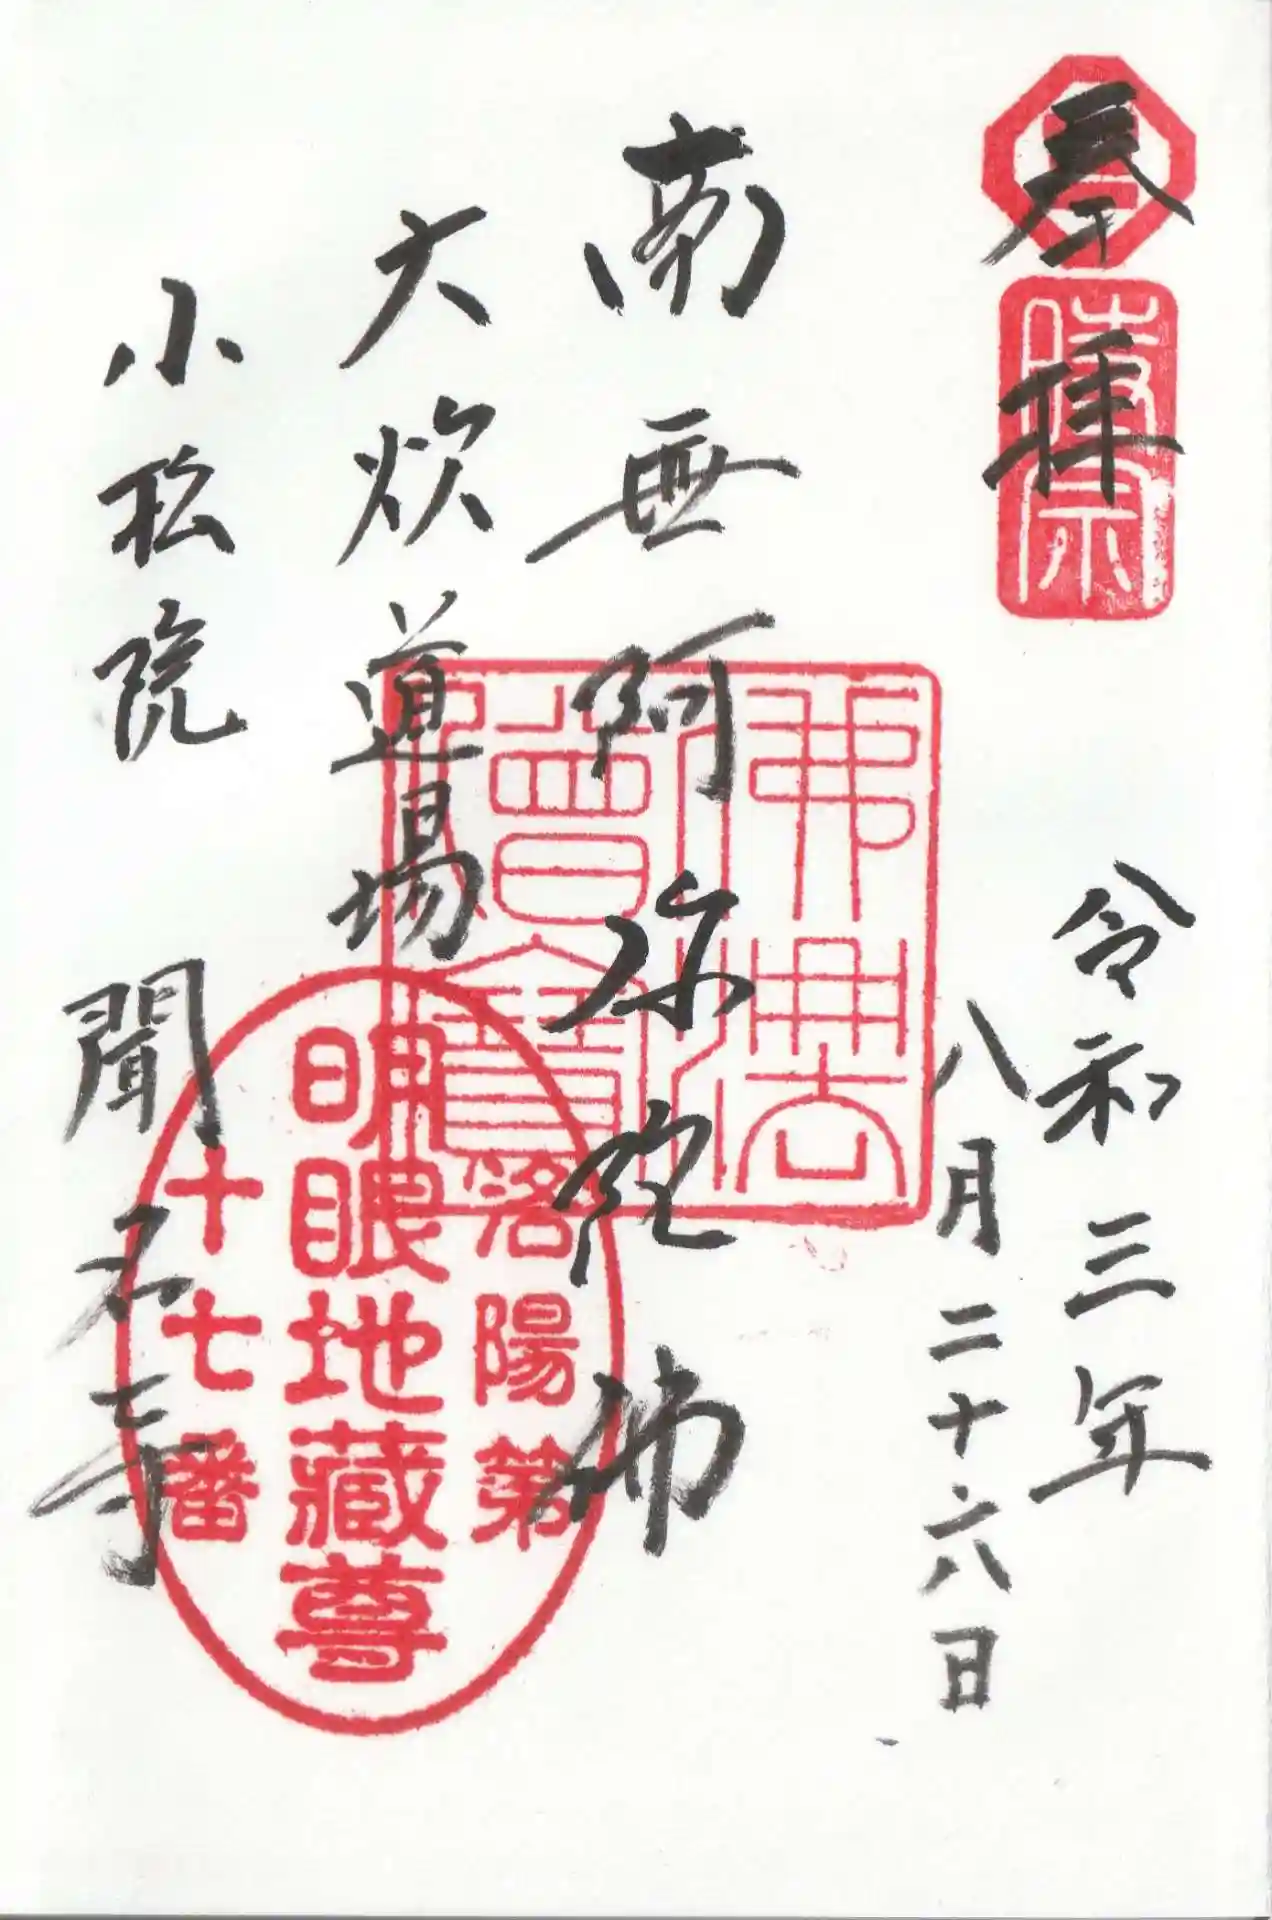 奉拝
令和三年
八月二十六日
南無阿弥陀佛
大炊道場
小松院
聞名寺
時宗
佛法
僧寶
洛陽第
明眼地蔵尊
十七番